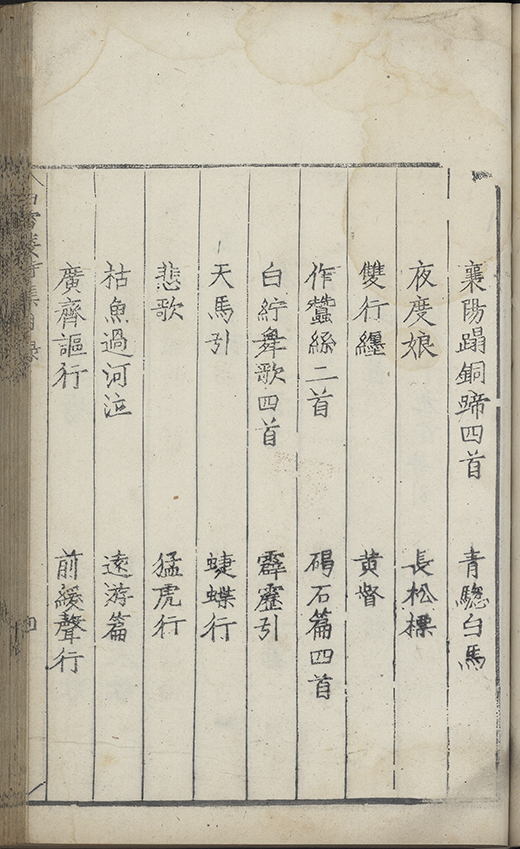 襄陽蹋銅蹄四首 青驄白馬
夜度娘 長松標
雙行纏 黃督
作蠶絲二首 碣石篇四首
白紵舞歌四首 霹靂引
天馬引 蜨蝶行
悲歌 猛虎行
枯魚過河泣 遠游篇
廣齊謳行 前緩聲行